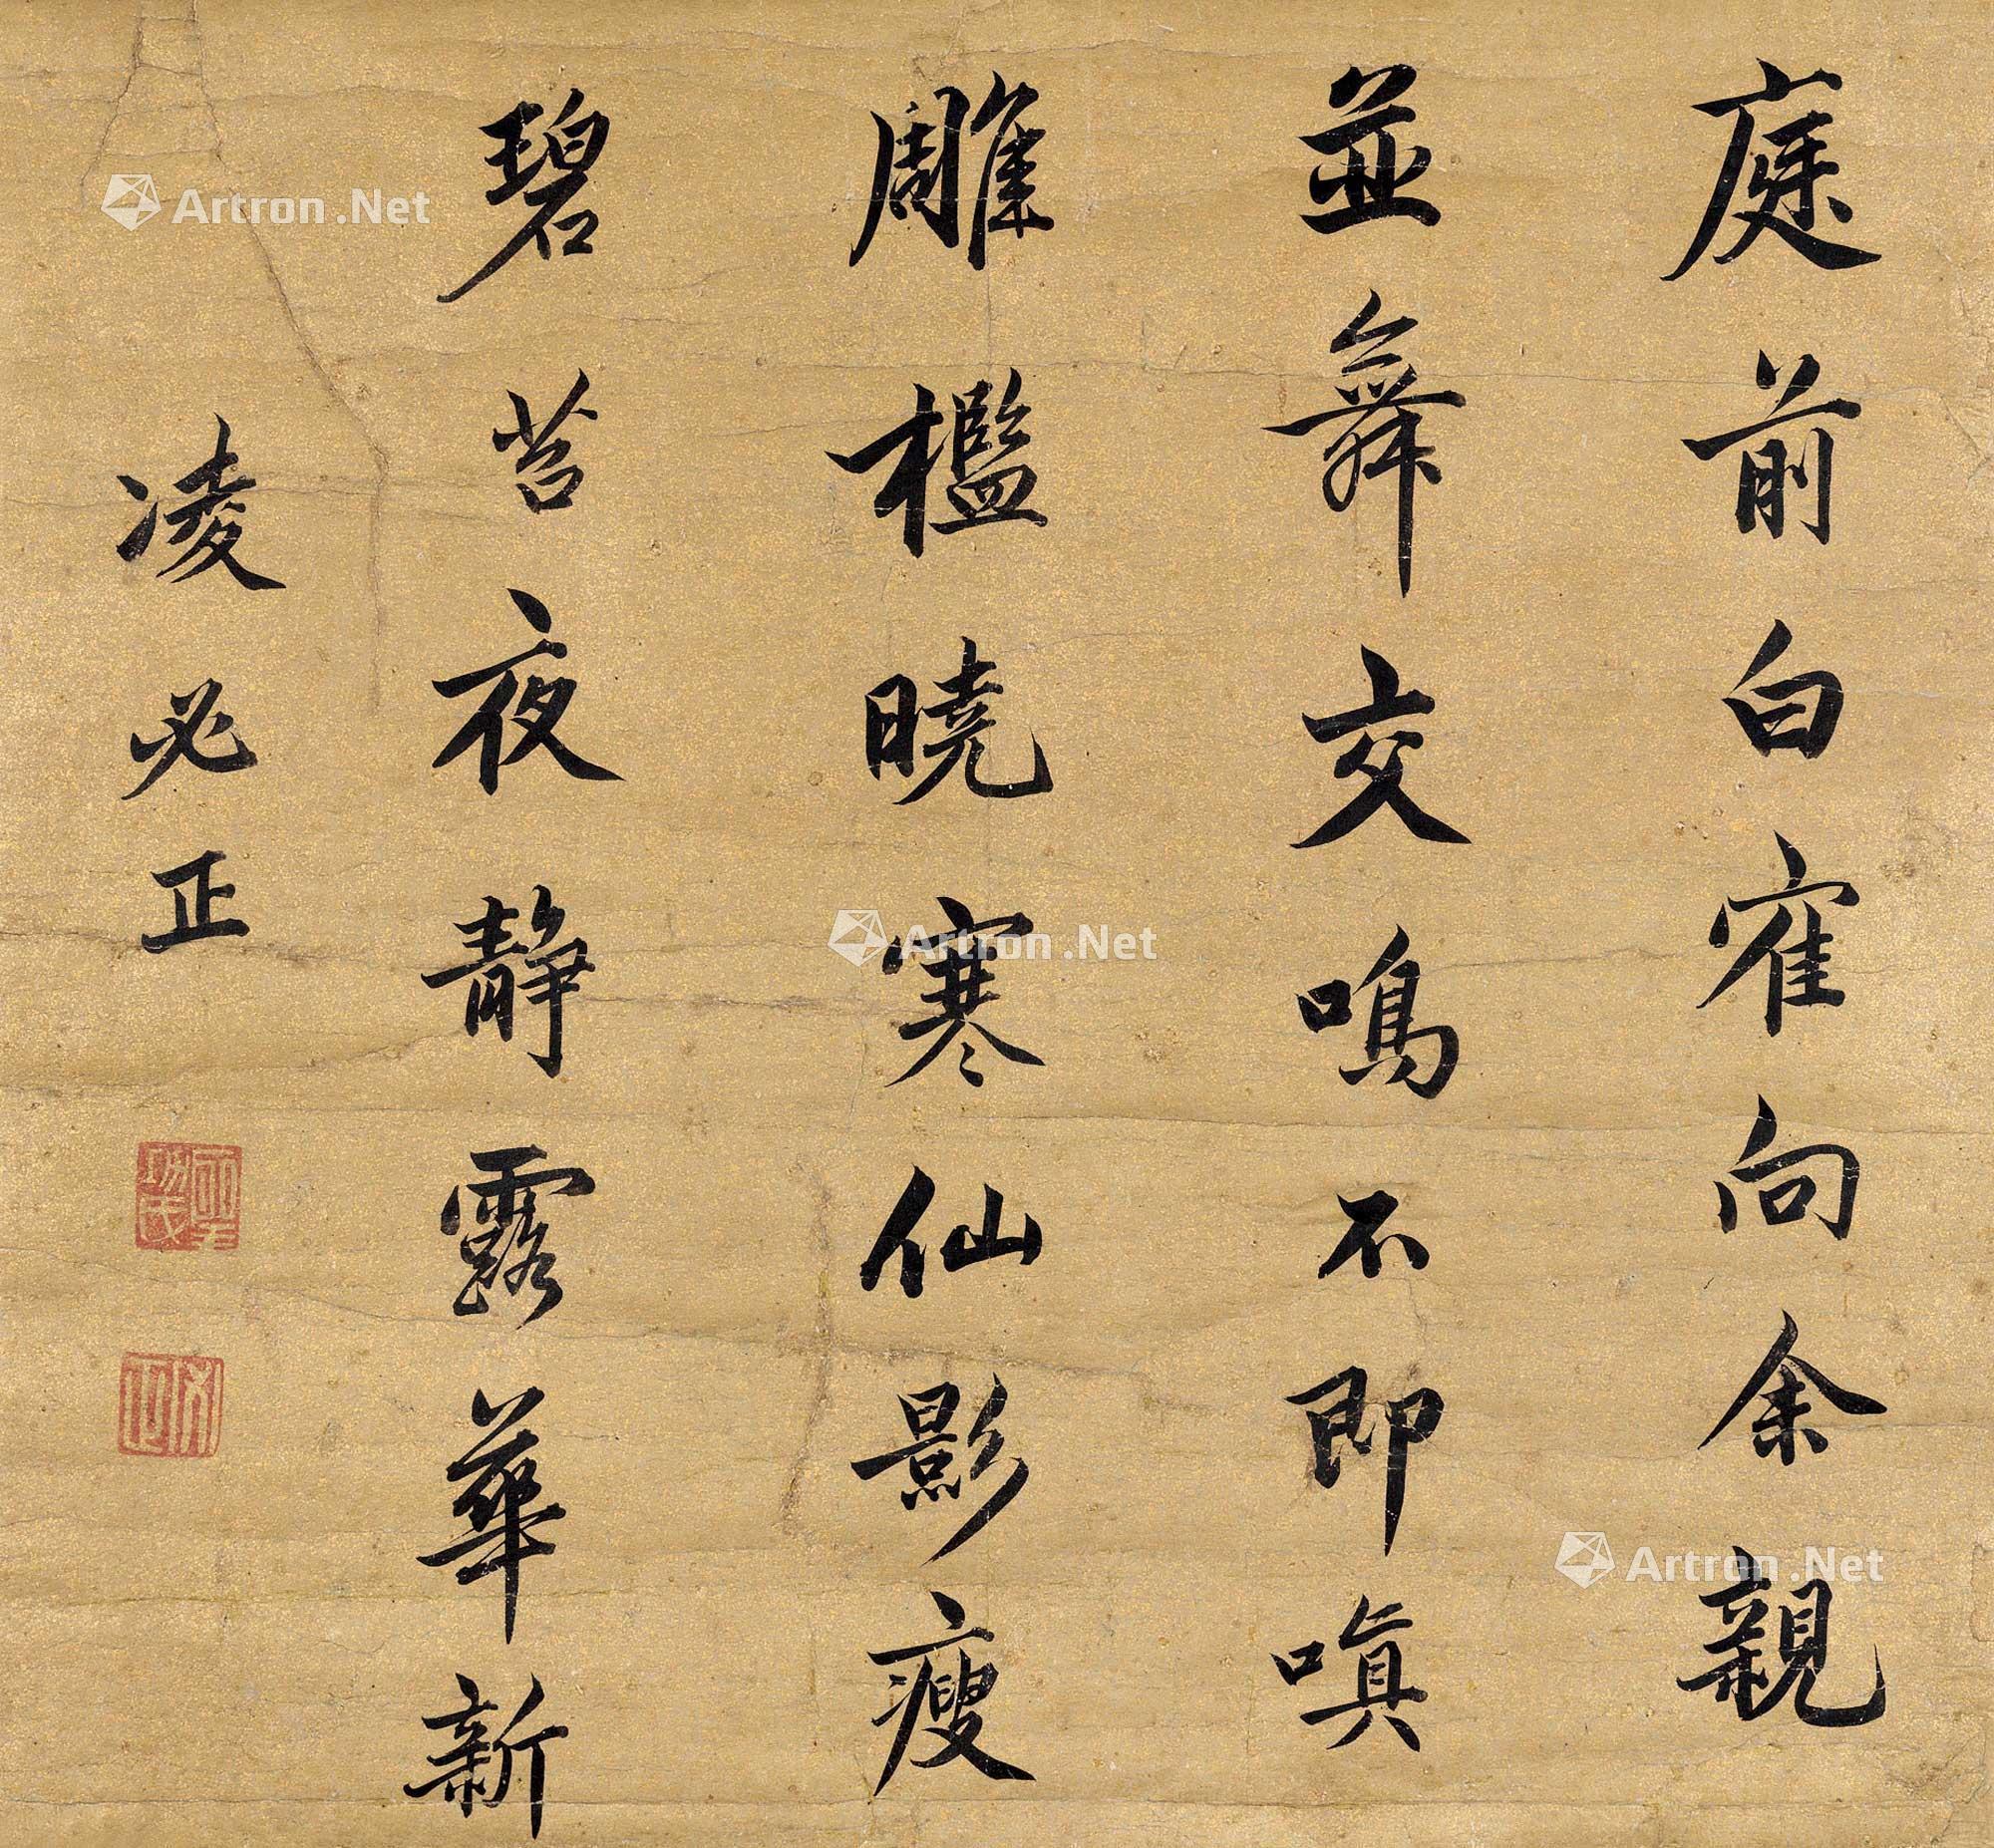 庭前白寉向余親
並舞交鳴不即嗔
雕檻曉寒仙影瘦
碧苔夜靜露華新
凌必正
Artron.Net
Artron.Net
Artron.Net